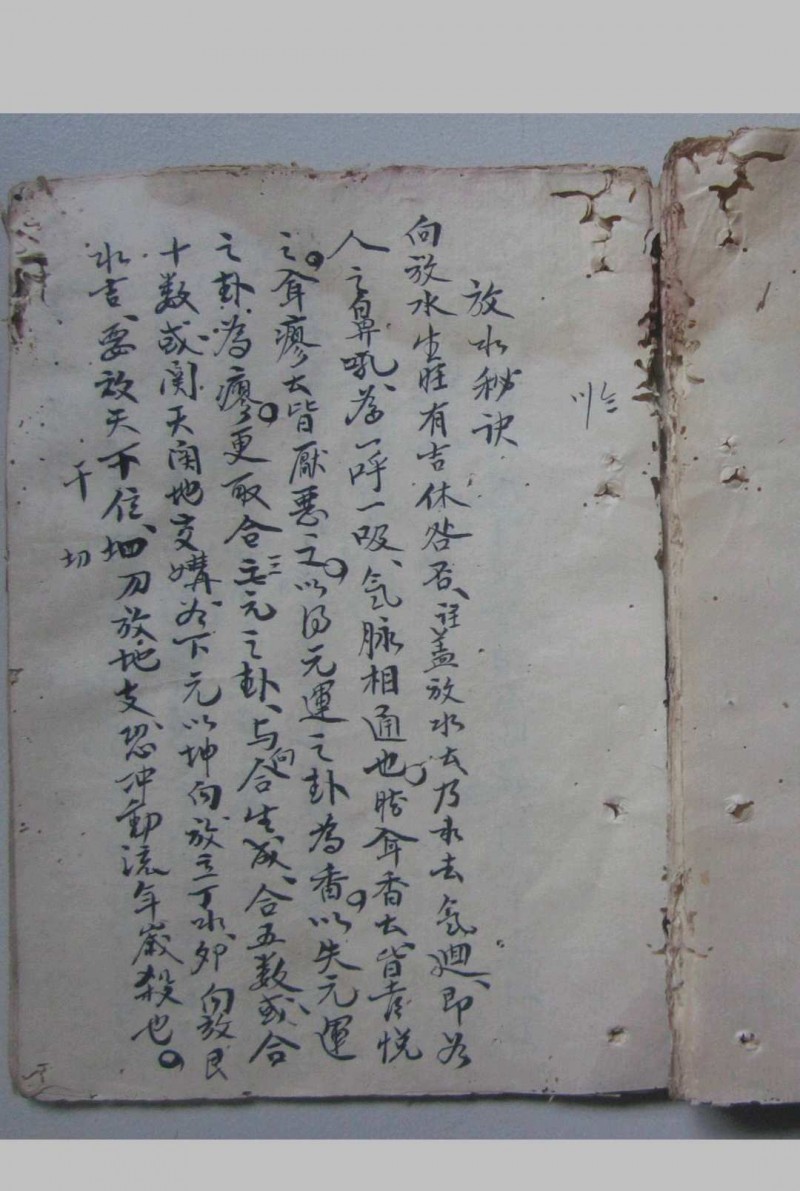 放水秘诀
向放水生旺有吉休咎否、註盖放水去乃水去氣廻、即为
人之鼻吼、為一呼一吸、氣脉相通也。時耳香大皆喜悦
之。耳瘳大皆厭悪之。以得元運之卦為香。以失元運
之卦為瘳。更取合三元之卦、与向合生成、合五数或合
十数或関天関地交媾、如下元以坤向放丁水、卯向放艮
水吉、要放天干位、切勿放地支恐冲動流年嵗殺也。
干
切